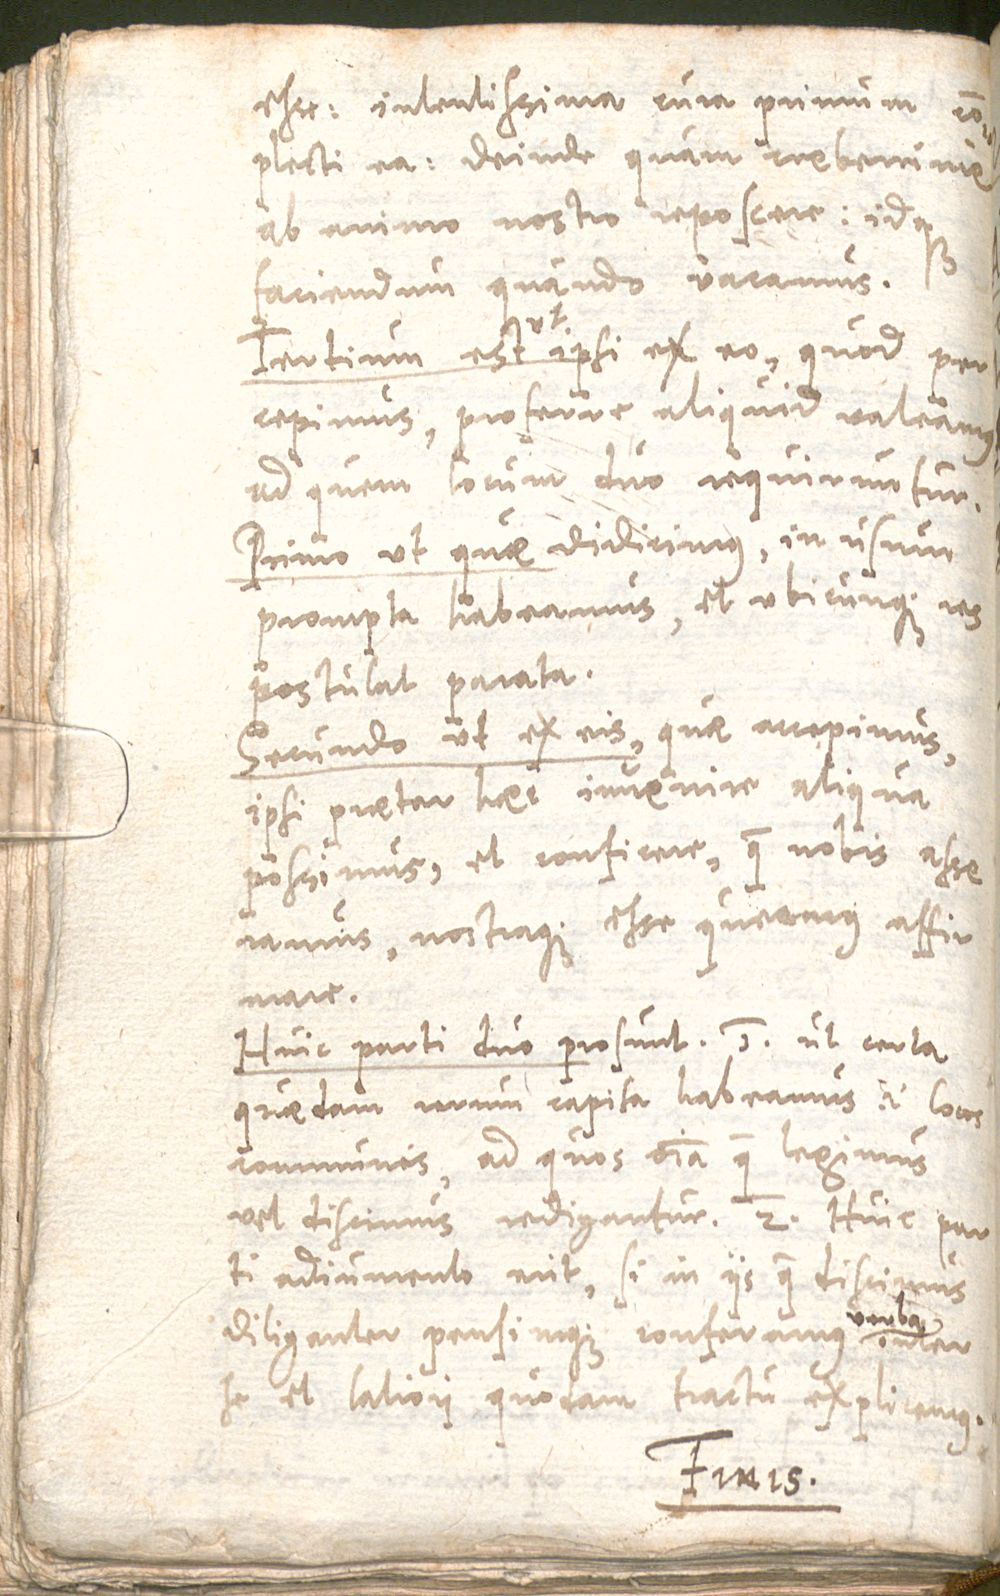 esse: intentissima cura primum cō-
plecti ea: deinde quàm creberrime
ab animo nostro reposcere: idq́ꝫ
faciendum quando vacamus.
Tertium est vt ipsi ex eo, quod per
cepimus, proferre aliquid valeamꝰ
ad quem locum duo requiruntur.
Primo vt quæ didicimꝰ, in usum
prompta habeamus, et vbicunqꝫ res
postulat parata.
Secundo vt ex eis, quæ accepimus,
ipsi præter hæc inuenire aliqua
possimus, et conficere, q̄ nobis asse
ramus, nostraqꝫ esse queamꝰ affir
mare.
Huic parti duo prosunt. 1. ut certa
quædam rerum capita habeamus i locos
communes, ad quos oīa q̄ legimus
vel discimus redigantur. 2. Huic par
ti adiumento erit, si in ijs q̄ discimus
diligenter pensimqꝫ conferamꝰ verba inter
se et latiori quodam tractu explicemꝰ.
Finis.